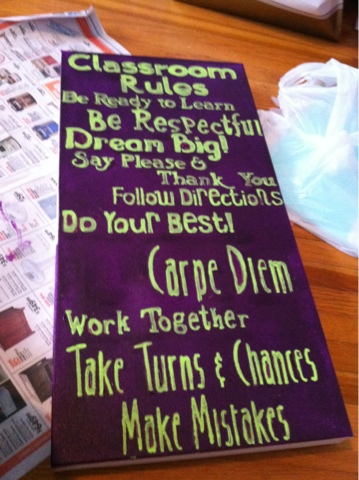 Classroom
Rules
Be Ready to Learn
Be Respectful
Dream Big!
Say Please &
Thank You
Follow Directions
Do Your Best!
Carpe Diem
Work Together
Take Turns & Chances
Make Mistakes